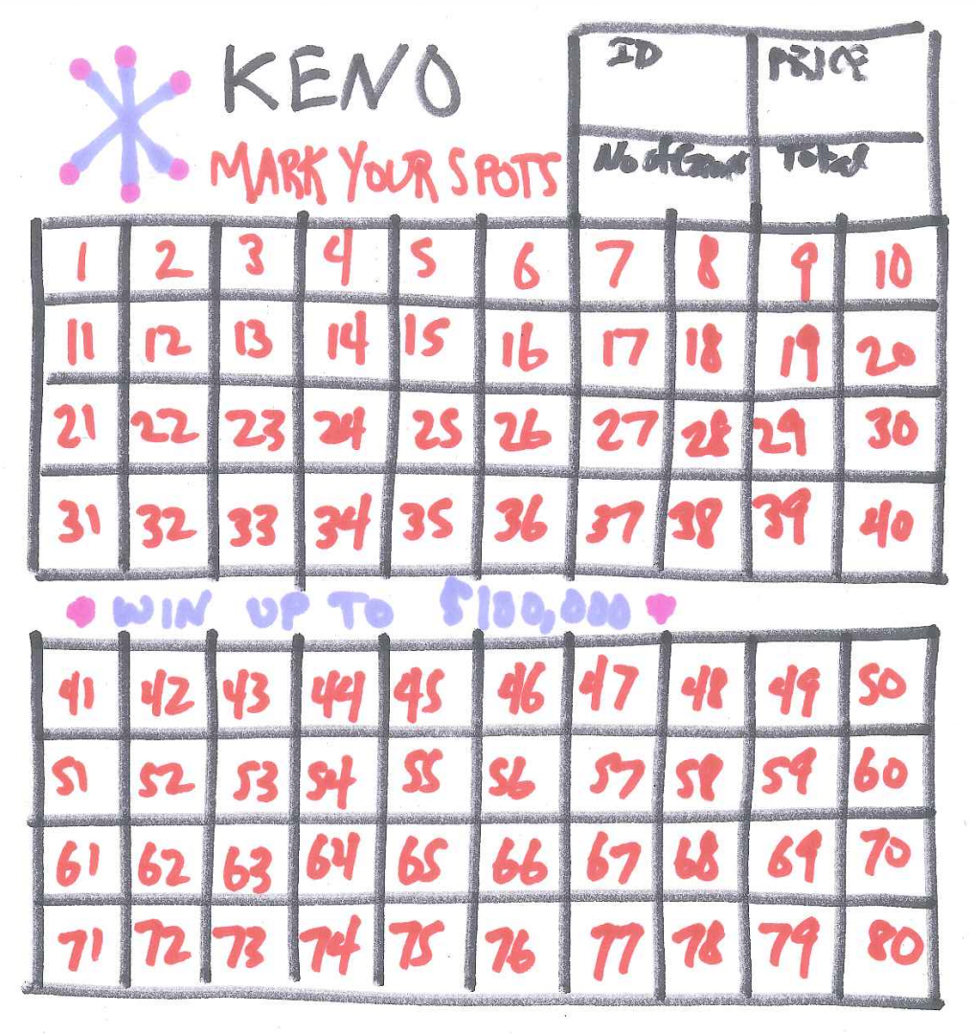 KENO
ID PRICE
MARK YOUR SPOTS
No of Games Total
1 2 3 4 5 6 7 8 9 10
11 12 13 14 15 16 17 18 19 20
21 22 23 24 25 26 27 28 29 30
31 32 33 34 35 36 37 38 39 40
WIN UP TO $100,000
41 42 43 44 45 46 47 48 49 50
51 52 53 54 55 56 57 58 59 60
61 62 63 64 65 66 67 68 69 70
71 72 73 74 75 76 77 78 79 80